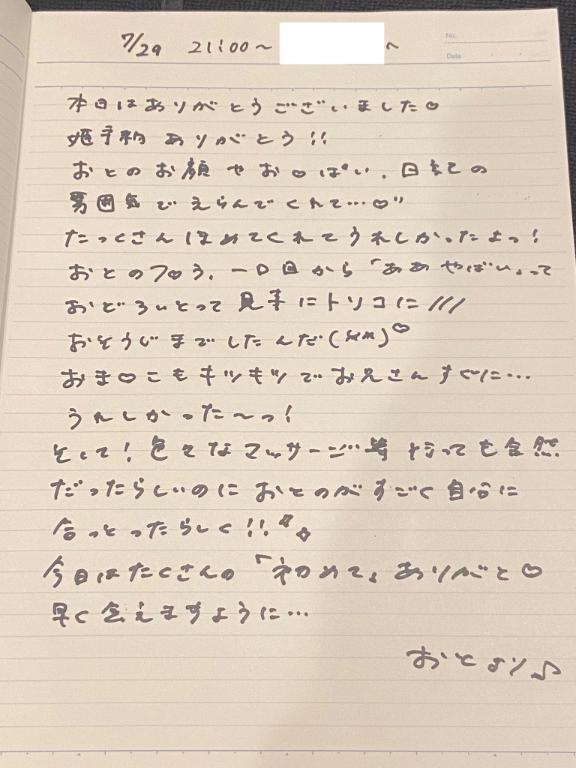 7/29 21:00〜 へ
No.
Date
本日はありがとうございました♡
姫予約 ありがとう!!
おとのお顔やお♡ぱい、日記の
雰囲気でえらんでくれて…♡"
たっくさんほめてくれてうれしかったよっ!
おとのフ♡う、一口目から「ああやばい」って
おどろいとって 見事にトリコに///
おそうじまでしたんだ(**)♡
おま♡こもキツキツでお兄さんすぐに…
うれしかった〜っ!
そして! 色々なマッサージ等 行っても全然
だったらしいのに おとのがすごく自分に
合っとったらしく!!
今日はたくさんの「初めて」ありがと♡
早く会えますように…
おとより♪